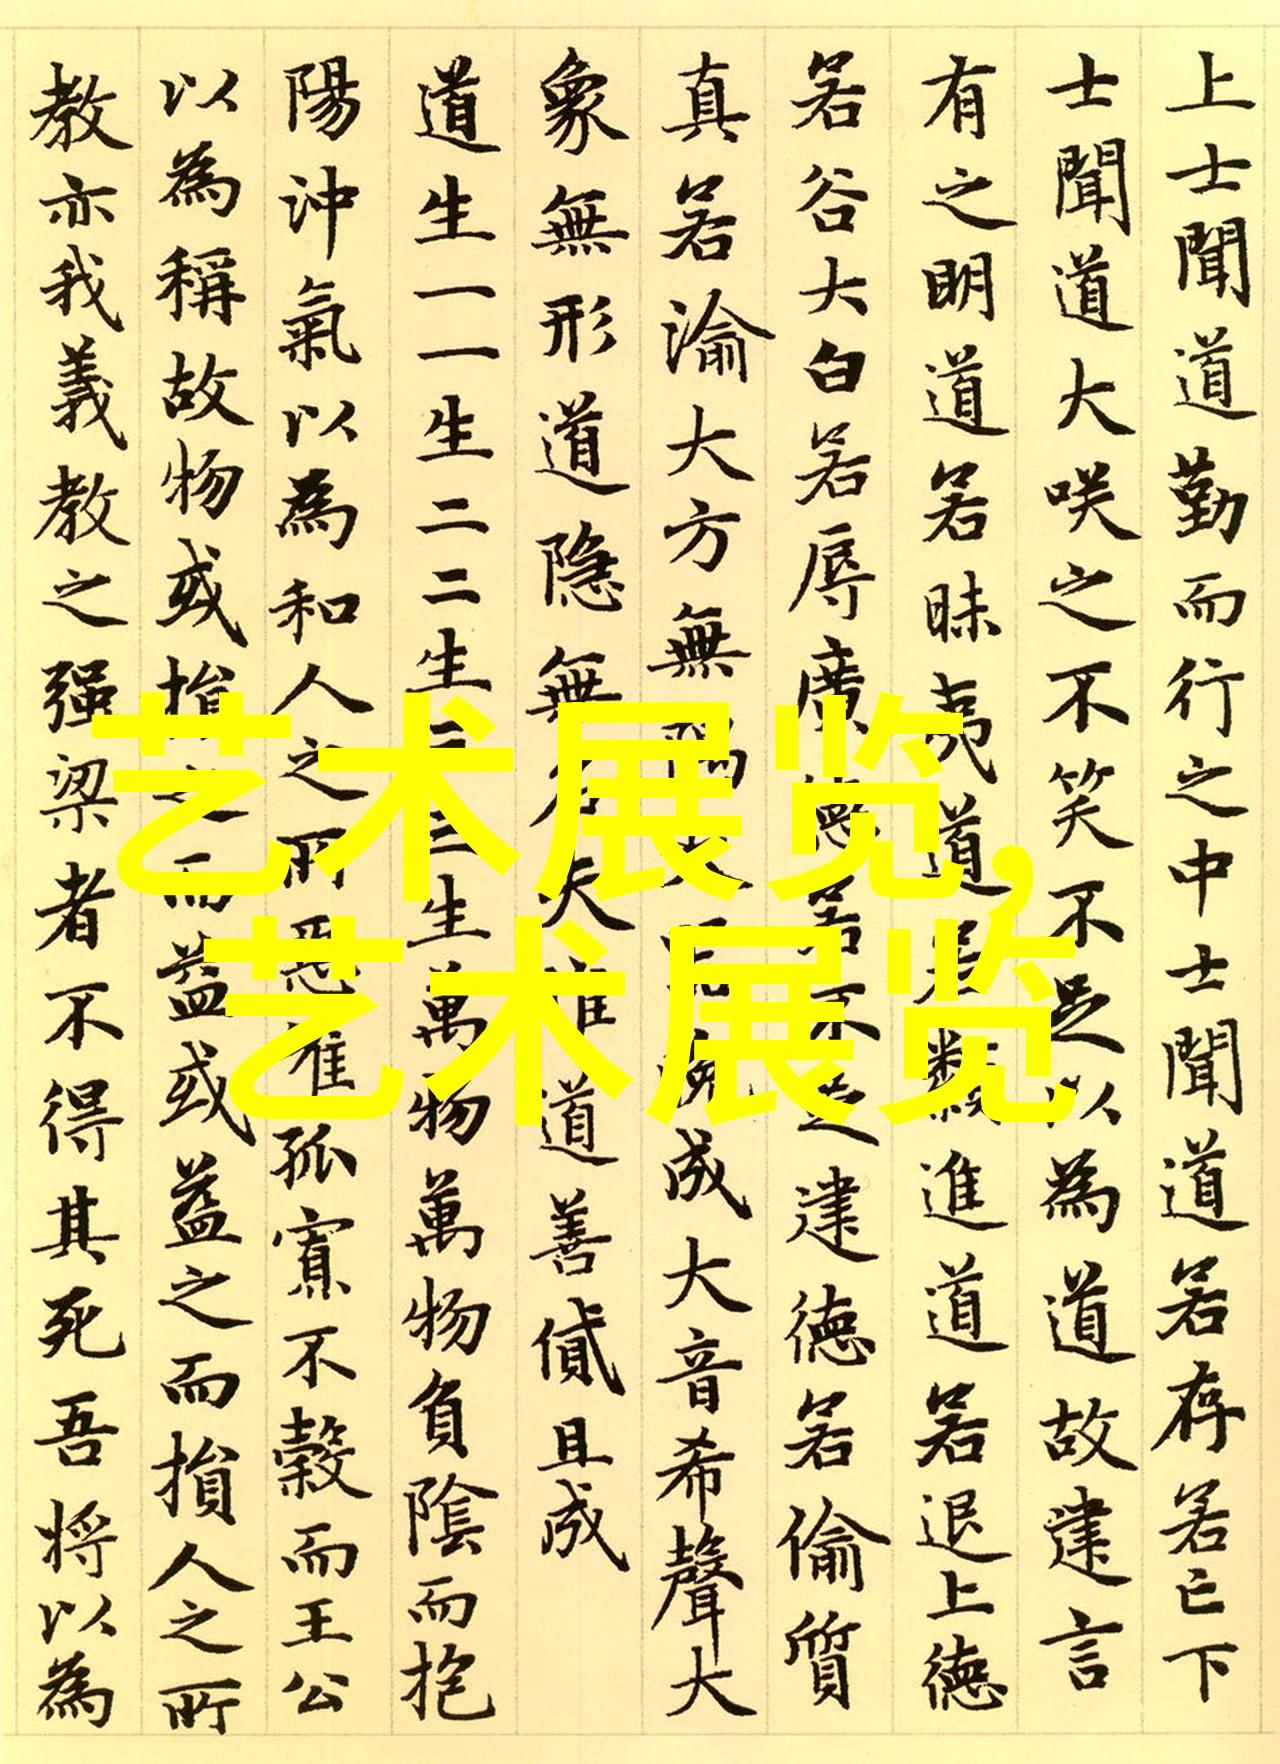 上士聞道勤而行之中士聞道若存若亡下
士聞道大咲之不笑不足以為道故建言
有之明道若昧夷道若纇進道若退上德
若谷大白若辱廣德若不足建德若偷質
真若渝大方無隅大器晚成大音希聲大
象無形道隐無名夫唯道善貸且成
道生一一生二二生三三生萬物萬物負陰而抱
陽沖氣以為和人之所惡唯孤寡不穀而王公
以為稱故物或損之而益或益之而損人之所
教亦我義教之强梁者不得其死吾将以為
艺术展览,
艺术展览